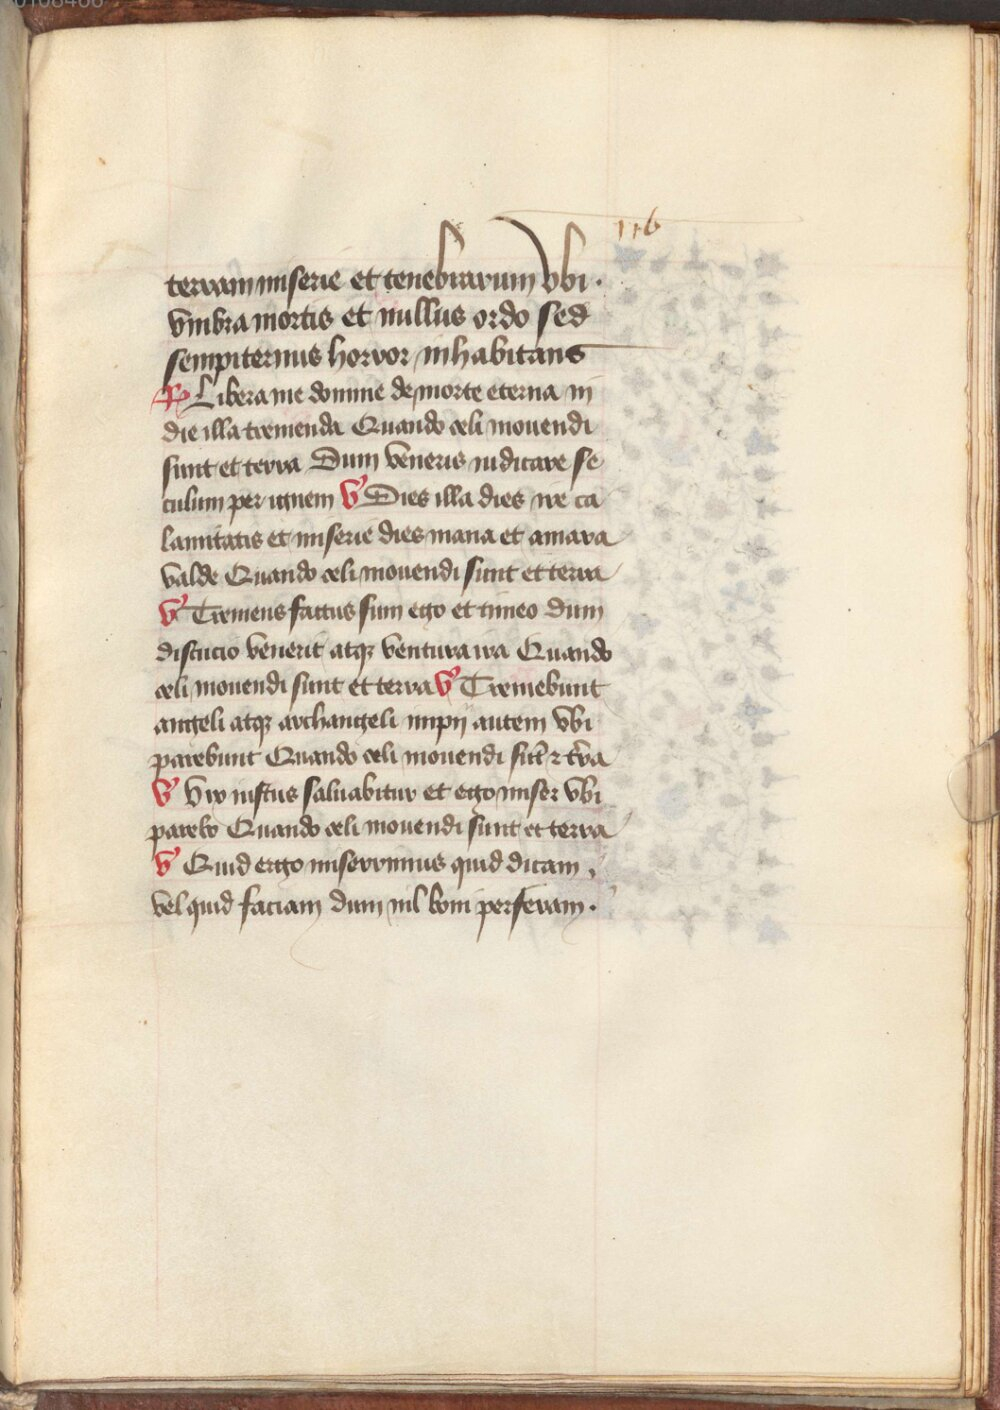 116
terram miserie et tenebrarum vbi.
vmbra mortis et nullus ordo sed
sempiternus horror inhabitans
R Libera me domine de morte eterna in
die illa tremenda Quando celi mouendi
sunt et terra Dum veneris iudicare se
culum per ignem V Dies illa dies ire ca
lamitatis et miserie dies mana et amara
valde Quando celi mouendi sunt et terra
V Tremens factus sum ego et timeo dum
discucio venerit atqꝫ ventura ira Quando
celi mouendi sunt et terra V Tremebunt
angeli atqꝫ archangeli impij autem vbi
parebunt Quando celi mouendi sūt ⁊ tr̄a
V Vix iustus saluabitur et ego miser vbi
parebo Quando celi mouendi sunt et terra
V Quid ergo miserrimus quid dicam,
vel quid faciam dum nil boni perferam.